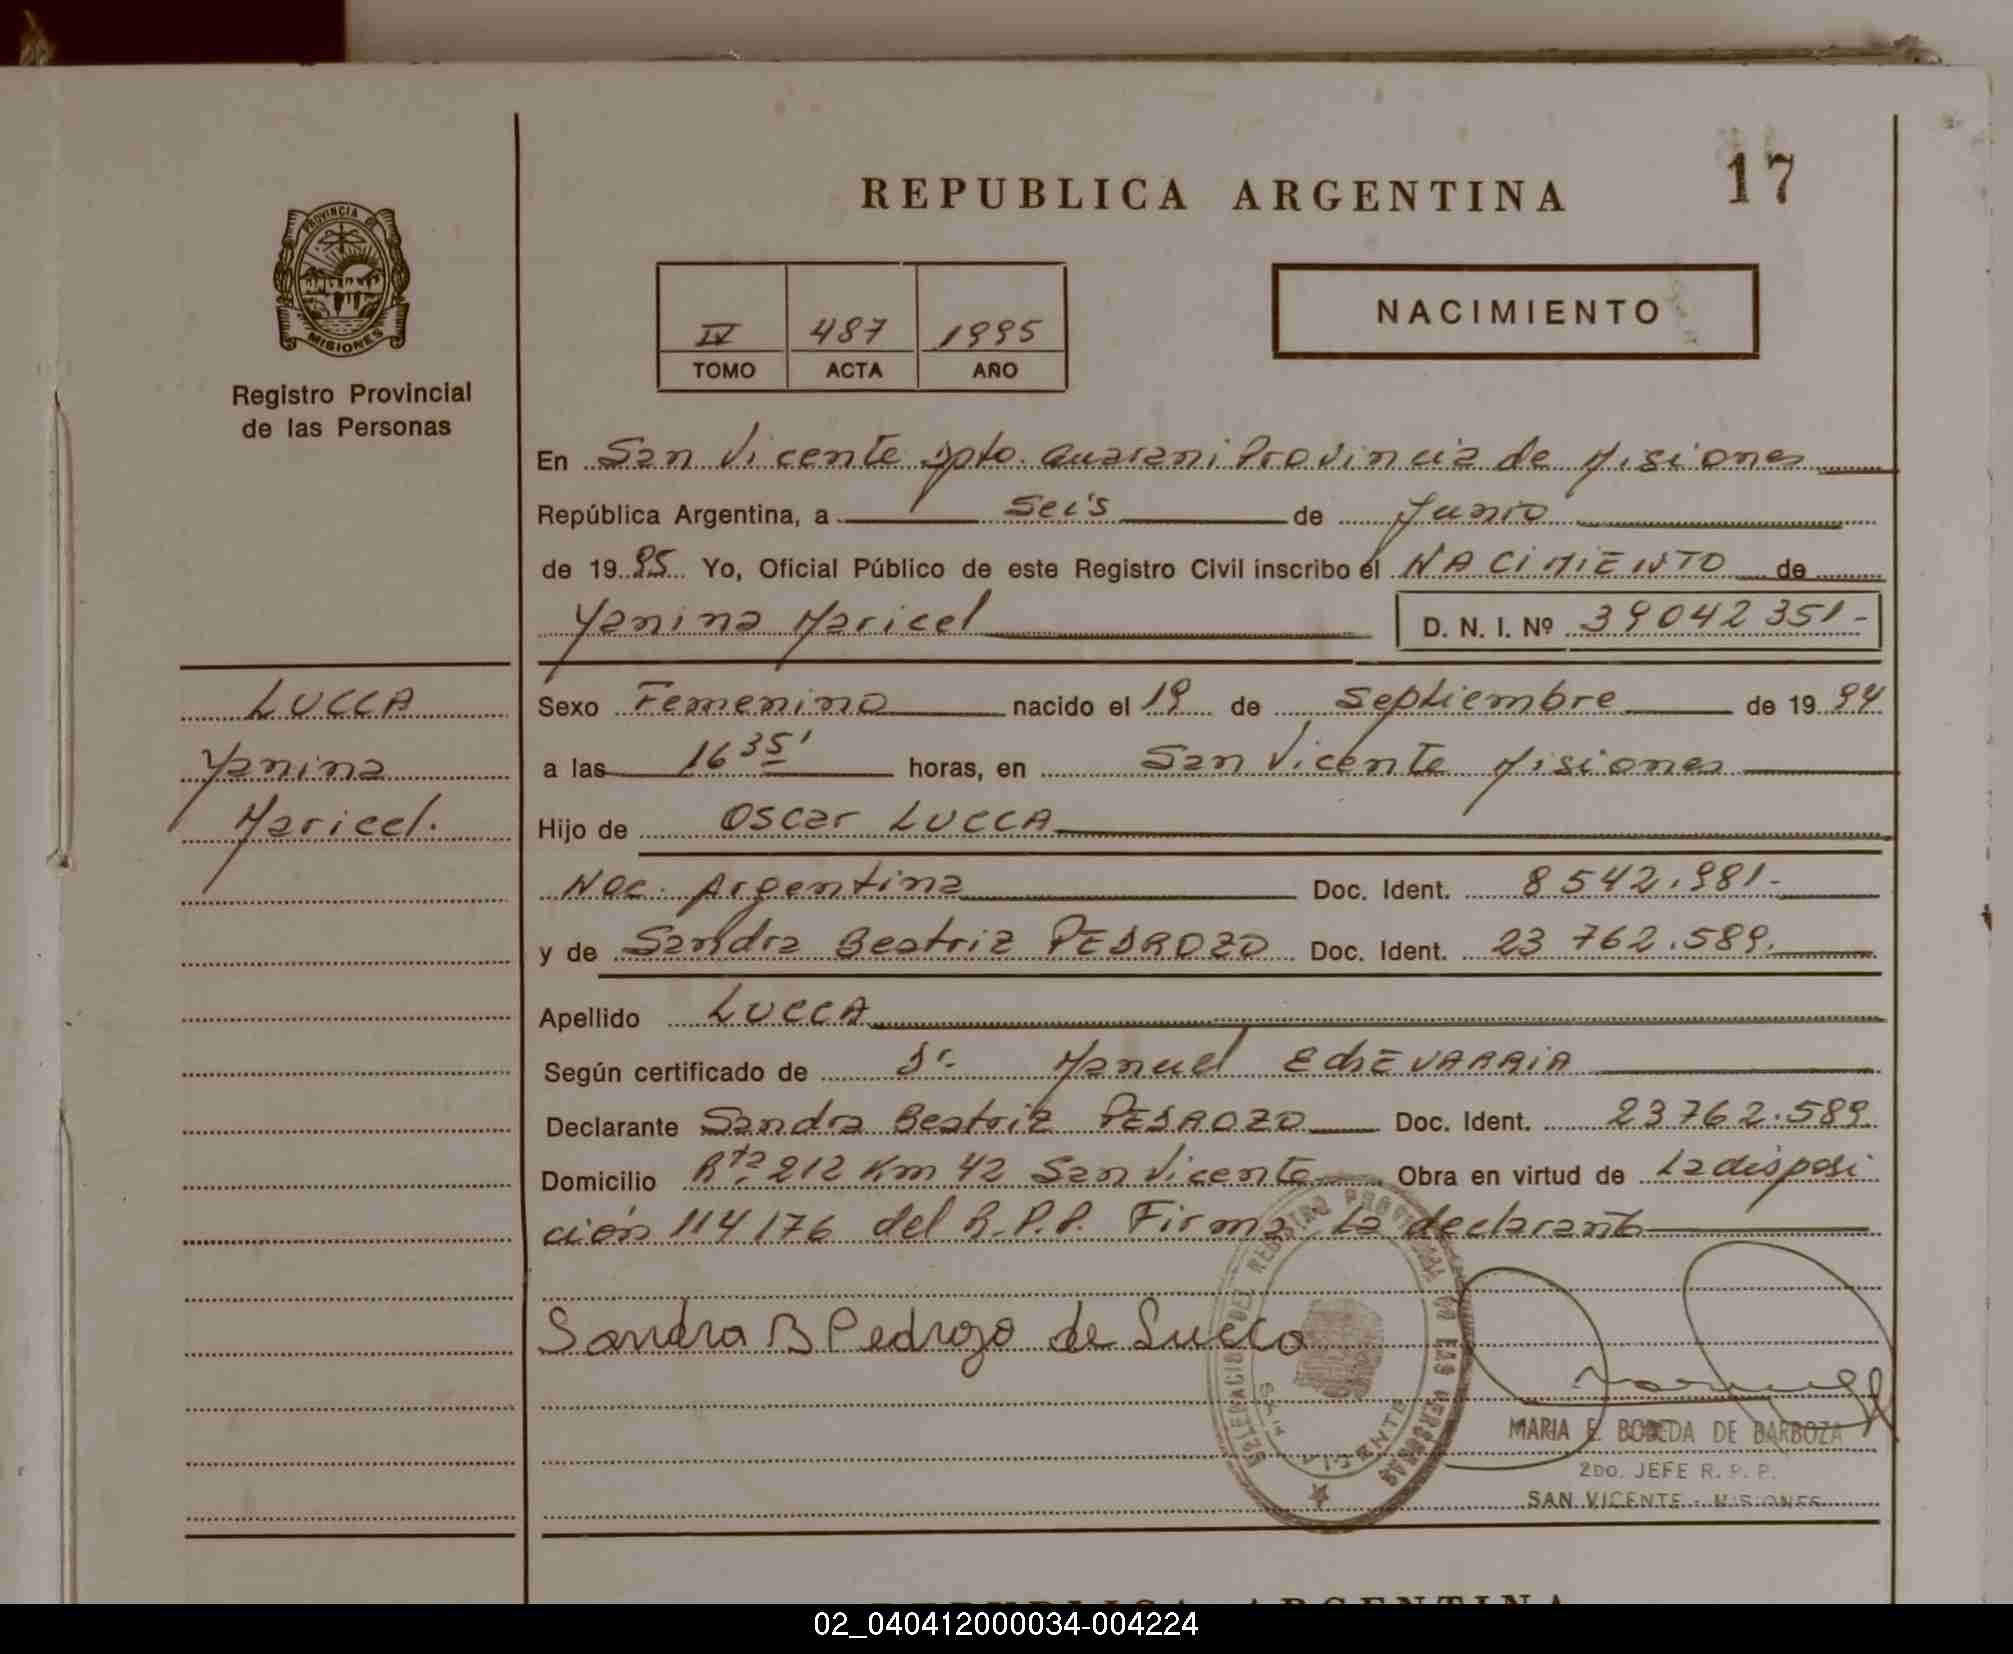 REPUBLICA ARGENTINA
17
PROVINCIA DE
MISIONES
Registro Provincial
de las Personas
IV 487 1995
TOMO ACTA AÑO
NACIMIENTO
En San Vicente Dpto. Guarani Provincia de Misiones
República Argentina, a Seis de Junio
de 1995 Yo, Oficial Público de este Registro Civil inscribo el NACIMIENTO de
Yanina Maricel D. N. I. Nº 39042351-
LUCCA
Yanina
Maricel.
Sexo Femenino nacido el 19 de Septiembre de 1994
a las 16 35' horas, en San Vicente Misiones
Hijo de Oscar LUCCA
Nac. Argentina Doc. Ident. 8542.981-
y de Sandra Beatriz PEDROZO Doc. Ident. 23 762.589.
Apellido LUCCA
Según certificado de Dr. Manuel EchEVARRiA
Declarante Sandra Beatriz PEDROZO Doc. Ident. 23762.589.
Domicilio Rta. 212 Km 42 San Vicente Obra en virtud de La disposi
ción 114176 del R.P.P. Firma La declarante
Sandra B Pedrozo de Lucca
DELEGACIO DEL REGISTRO PROVINCIAL DE LAS PERSONAS
SAN VICENTE
MARIA E. BOBEDA DE BARBOZA
2DO. JEFE R. P. P.
SAN VICENTE - MISIONES
REPUBLICA ARGENTINA
02_040412000034-004224